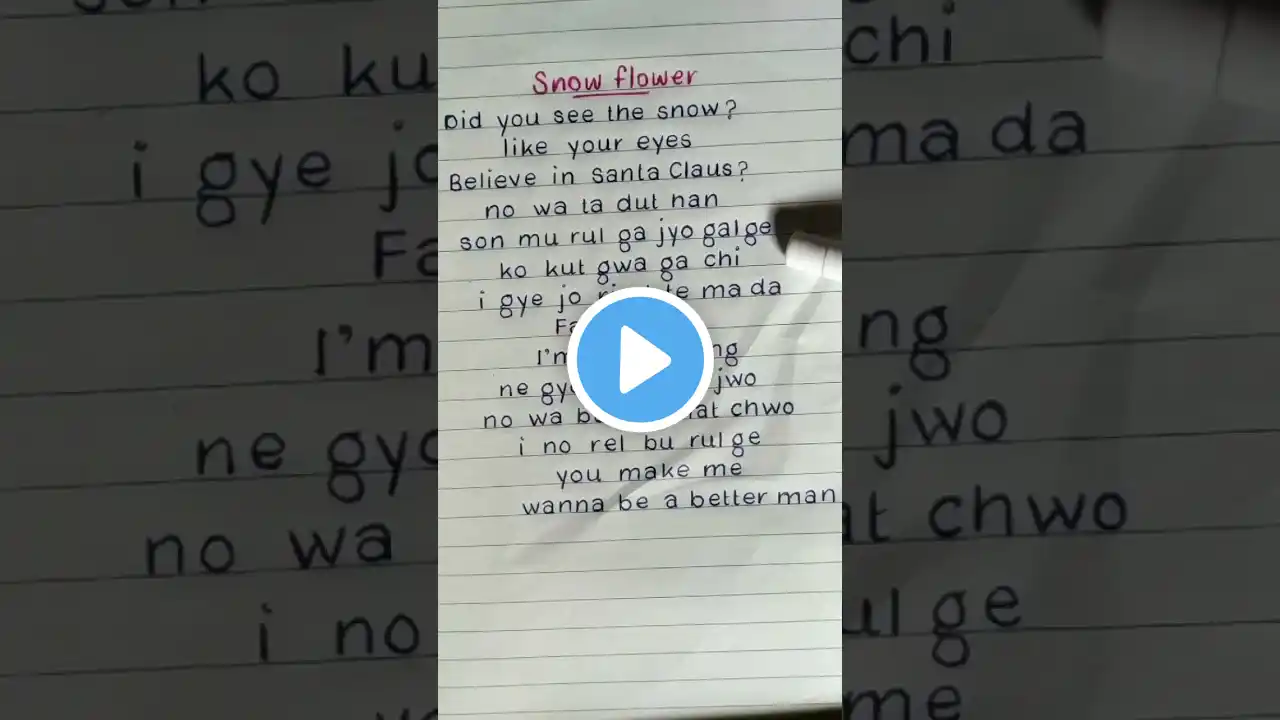 Snow flower
Did you see the snow?
like your eyes
Believe in Santa Claus?
no wa ta dut han
son mu rul ga jyo gal ge
ko kut gwa ga chi
i gye jo ma da
I'm
ne jwo
no wa chwo
i no rel bu rul ge
you make me
wanna be a better man